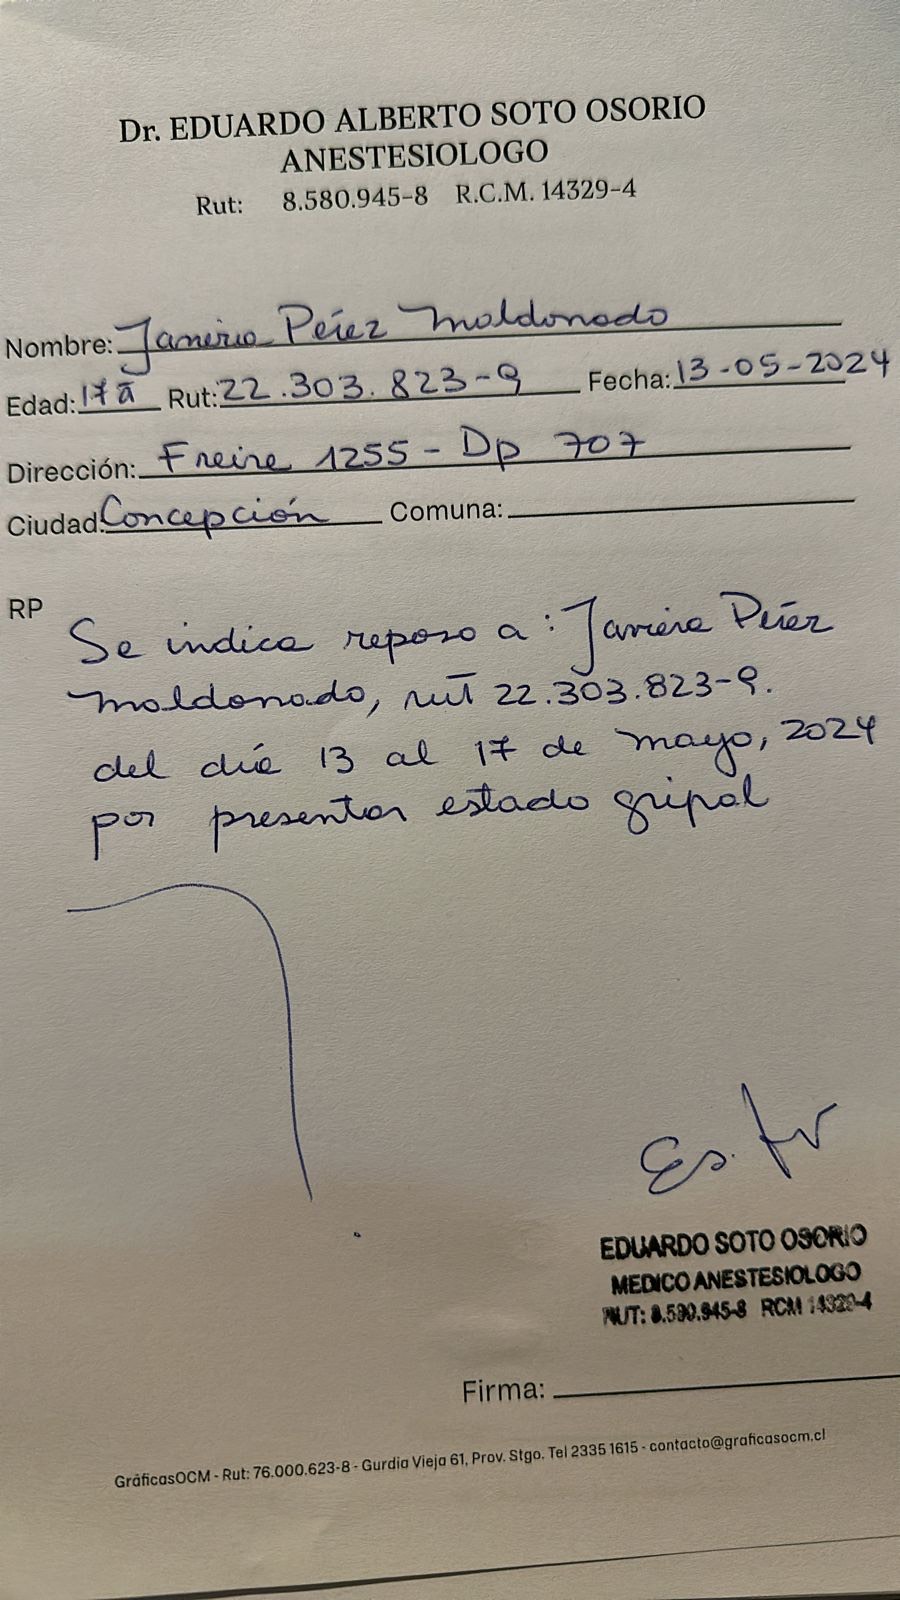 Dr. EDUARDO ALBERTO SOTO OSORIO
ANESTESIOLOGO
Rut: 8.580.945-8 R.C.M. 14329-4
Nombre: Javiera Pérez Maldonado
Edad: 17 a Rut: 22.303.823-9 Fecha: 13-05-2024
Dirección: Freire 1255 - Dp 707
Ciudad: Concepción Comuna:
RP
Se indica reposo a: Javiera Pérez
Maldonado, rut 22.303.823-9.
del día 13 al 17 de mayo, 2024
por presentar estado gripal
EDUARDO SOTO OSORIO
MEDICO ANESTESIOLOGO
RUT: 8.580.945-8 RCM 14329-4
Firma:
GráficasOCM - Rut: 76.000.623-8 - Gurdia Vieja 61, Prov. Stgo. Tel 2335 1615 - contacto@graficasocm.cl